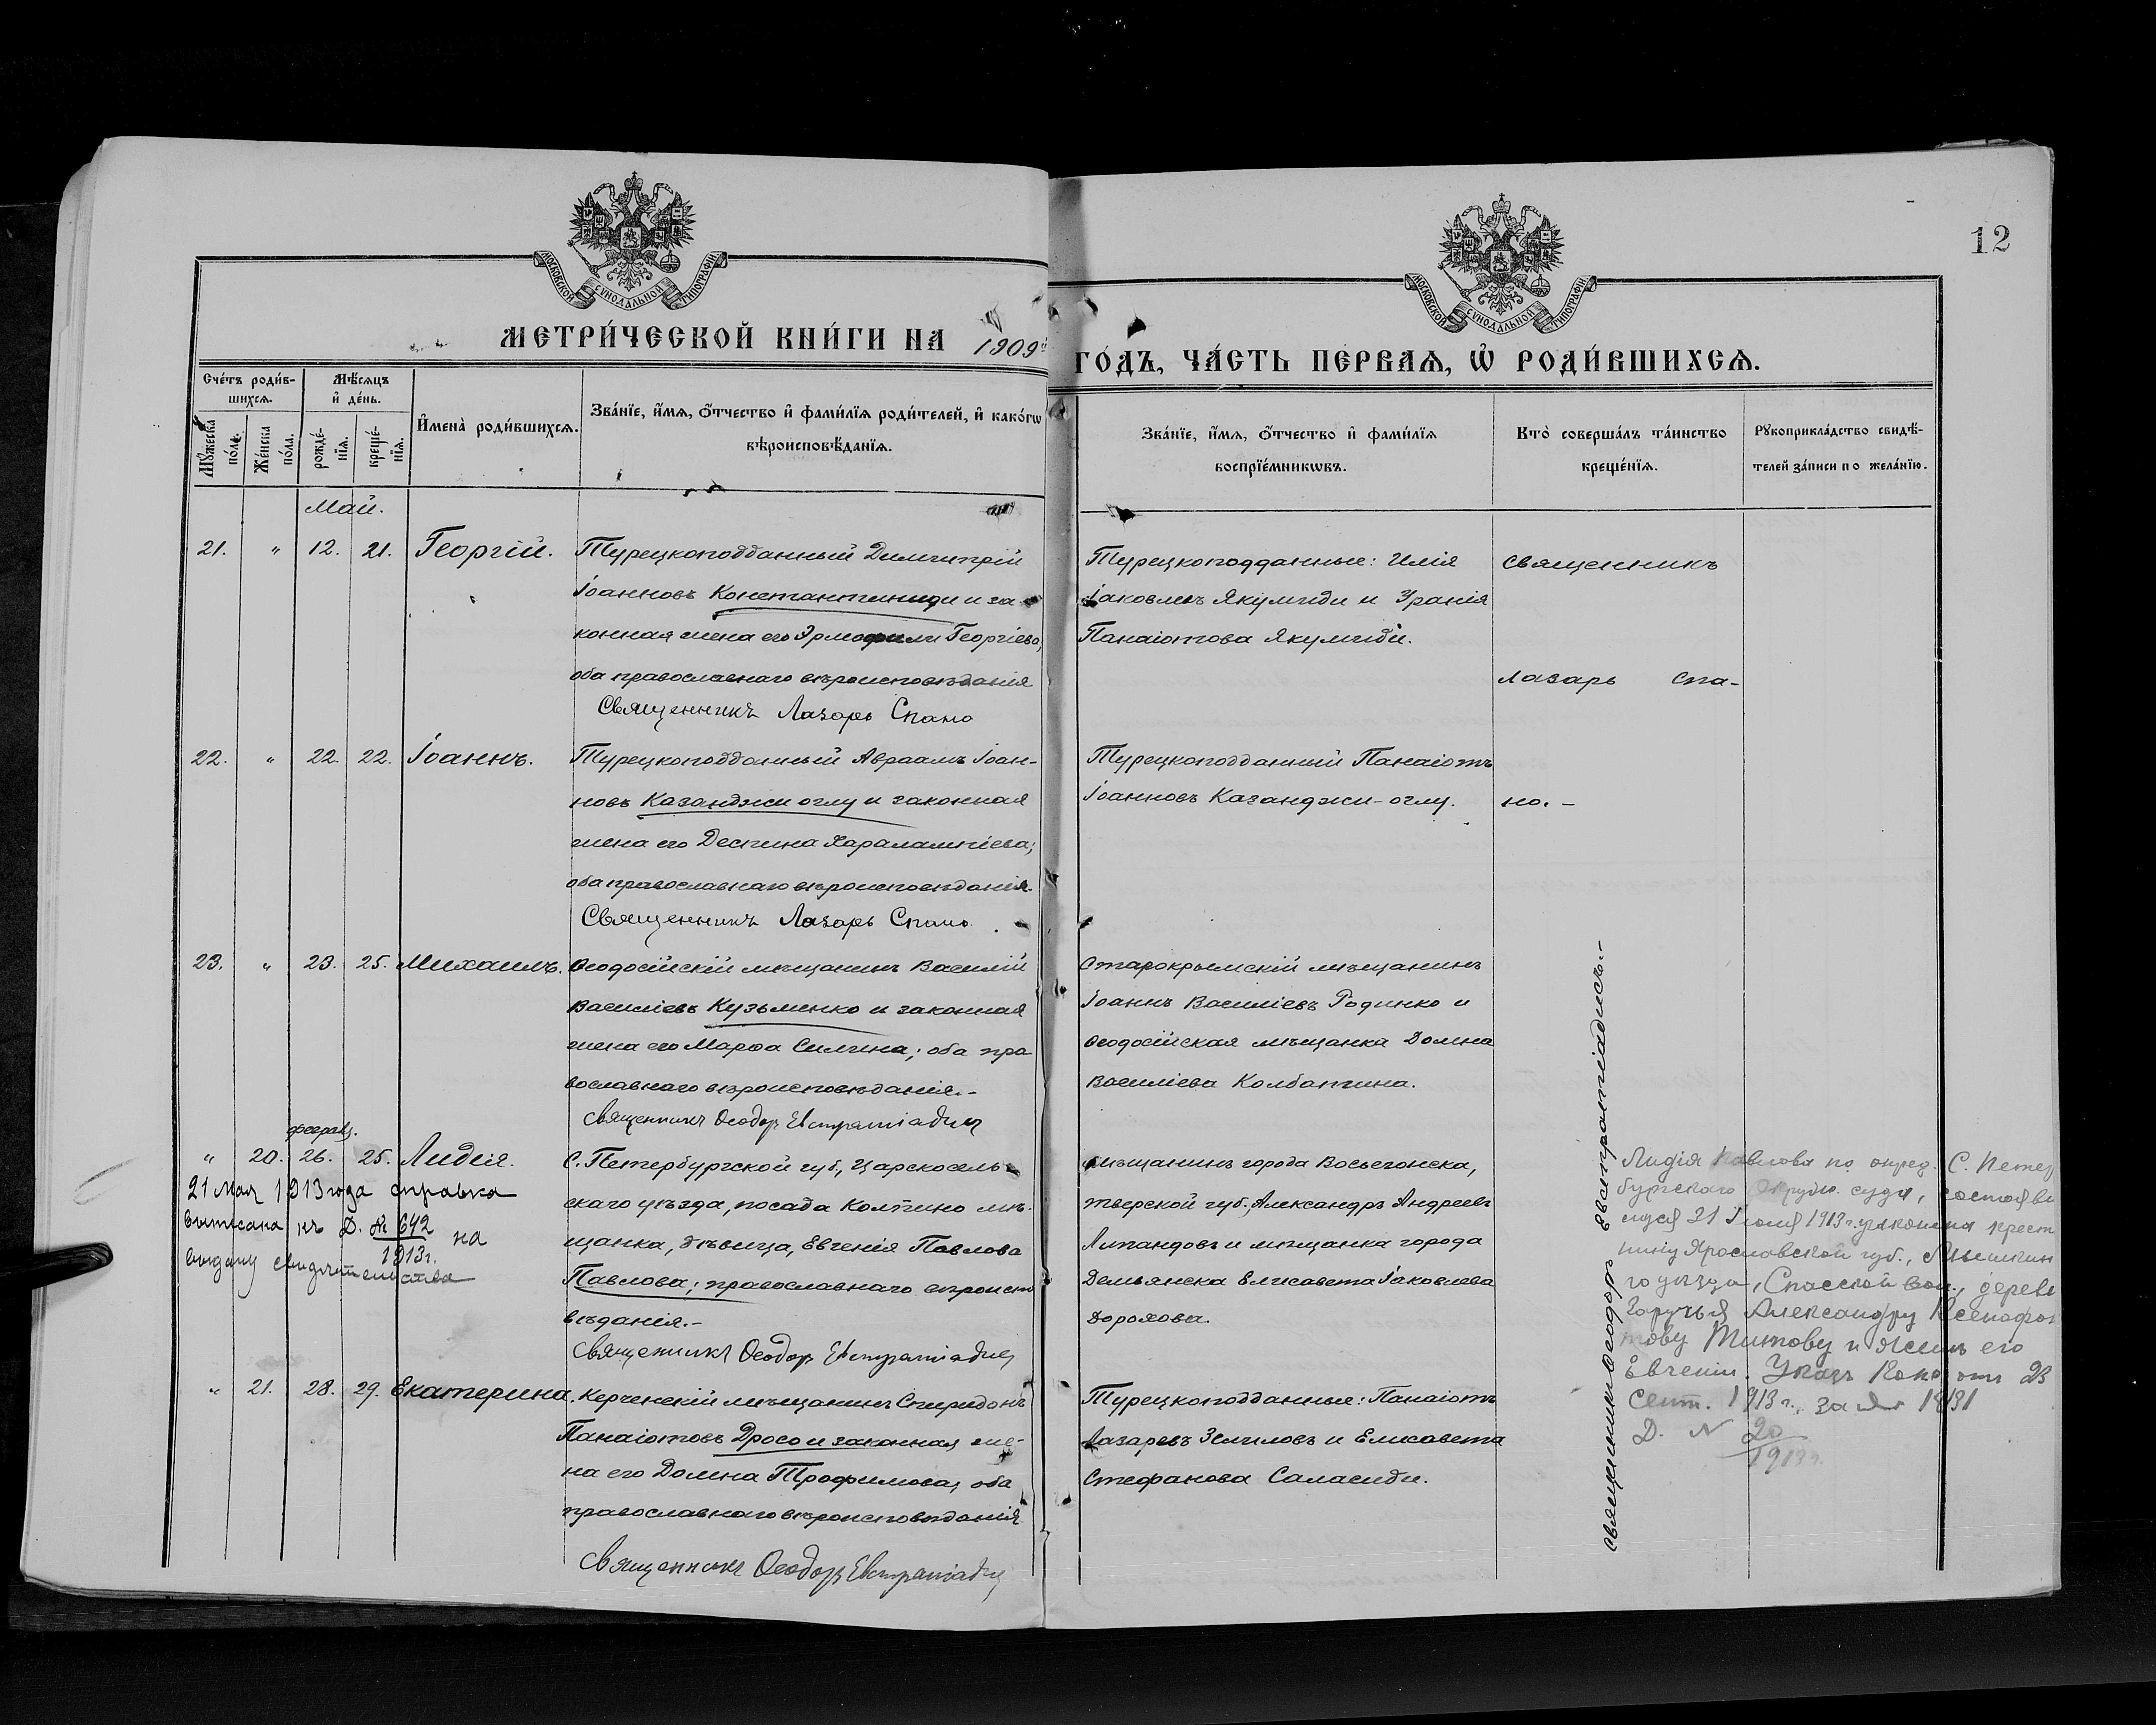 12
МОСКОВСКОЙ СѴНОДАЛЬНОЙ ТИПОГРАФІИ
МОСКОВСКОЙ СѴНОДАЛЬНОЙ ТИПОГРАФІИ
МЕТРИ́ЧЕСКОЙ КНИ́ГИ НА 1909й
ГО́ДЪ, ЧА́СТЬ ПЕРВАѦ, Ѽ РОДИ́ВШИХСѦ.
Сче́тъ роди́в-
шихсѧ.
Мꙋжеска по́ла.
Же́нска по́ла.
Мѣ́сѧцъ
и҆ де́нь.
рожде́-
нїѧ.
креще́-
нїѧ.
И҆мена̀ роди́вшихсѧ.
Зва́нїе, и҆́мѧ, ѻ҆́тчество и҆ фами́лїѧ роди́телей, и҆ како́гѡ
вѣроисповѣ́данїѧ.
Зва́нїе, и҆́мѧ, ѻ҆́тчество и҆ фами́лїѧ
воспрїе́мникѡвъ.
Кто̀ соверша́лъ та́инство
креще́нїѧ.
Рꙋкоприкла́дство свидѣ́-
телей за́писи по жела́нїю.
Май.
21. " 12. 21. Георгій.
Турецкоподданный Димитрій
Іоанновъ Константиниди и за-
конная жена его Эрмофили Георгіева,
оба православнаго вѣроисповѣданія
Священникъ Лазарь Спано
Турецкоподданные: Илія
Іаковлевъ Якумиди и Уранія
Панаіотова Якумиди.
Священникъ
Лазарь Спа-
22. " 22. 22. Іоаннъ.
Турецкоподданный Авраамъ Іоан-
новъ Казанджи оглу и законная
жена его Деспина Харалампіева;
оба православнаго вѣроисповѣданія.
Священникъ Лазарь Спано.
Турецкоподданный Панаіотъ
Іоанновъ Казанджи-оглу.
но.-
23. " 23. 25. Михаилъ.
Ѳеодосійскій мѣщанинъ Василій
Василіевъ Кузьменко и законная
жена его Марѳа Силина; оба пра-
вославнаго вѣроисповѣданія.-
Священникъ Ѳеодоръ Евстратіадисъ
Старокрымскій мѣщанинъ
Іоаннъ Василіевъ Родинко и
Ѳеодосійская мѣщанка Домна
Василіева Колбатина.
Священникъ Ѳеодоръ Евстратіадисъ.-
феврал.
" 20. 26. 25. Лидія.
21 Мая 1913 года справка
выписана къ Д. № 642
1913г. на
выдачу свидѣтельства
С. Петербургской губ., Царскосель-
скаго уѣзда, посада Колпино мѣ-
щанка, дѣвица, Евгенія Павлова
Павлова; православнаго вѣроиспо
вѣданія.-
Священникъ Ѳеодоръ Евстратіадисъ
мѣщанинъ города Весьегонска,
тверской губ., Александръ Андреевъ
Лпандовъ и мѣщанка города
Демьянска Елисавета Іаковлева
Дорохова.
Лидія Павлова по опред. С. Петер
бургскаго Окружн. суда, состоявш
муся 31 Іюля 1913 г. узаконена крест
нину Ярославской губ., Мышкин
го уѣзда, Спасской вол., дерев
Заручья Александру Ксенофон
тову Титову и женѣ его
Евгеніи. Указъ Конс. отъ 23
Сент. 1913 г., за № 18131
Д. № 20
1913 г.
" 21. 28. 29. Екатерина.
Керченскій мѣщанинъ Спиридонъ
Панаіотовъ Дросо и законная же-
на его Домна Трофимова; оба
православнаго вѣроисповѣданія
Священникъ Ѳеодоръ Евстратіадисъ
Турецкоподданные: Панаіотъ
Лазаревъ Земиловъ и Елисавета
Стефанова Саласиди.